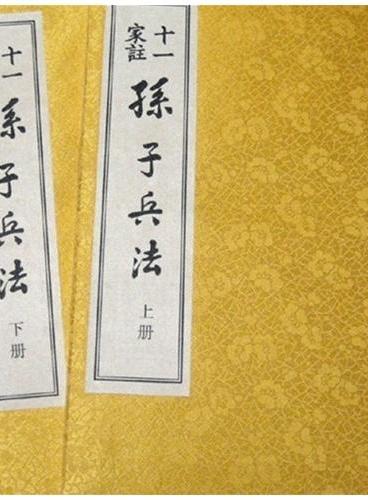 十一
家註
孫子兵法
上册
十一
孫子兵法
下册